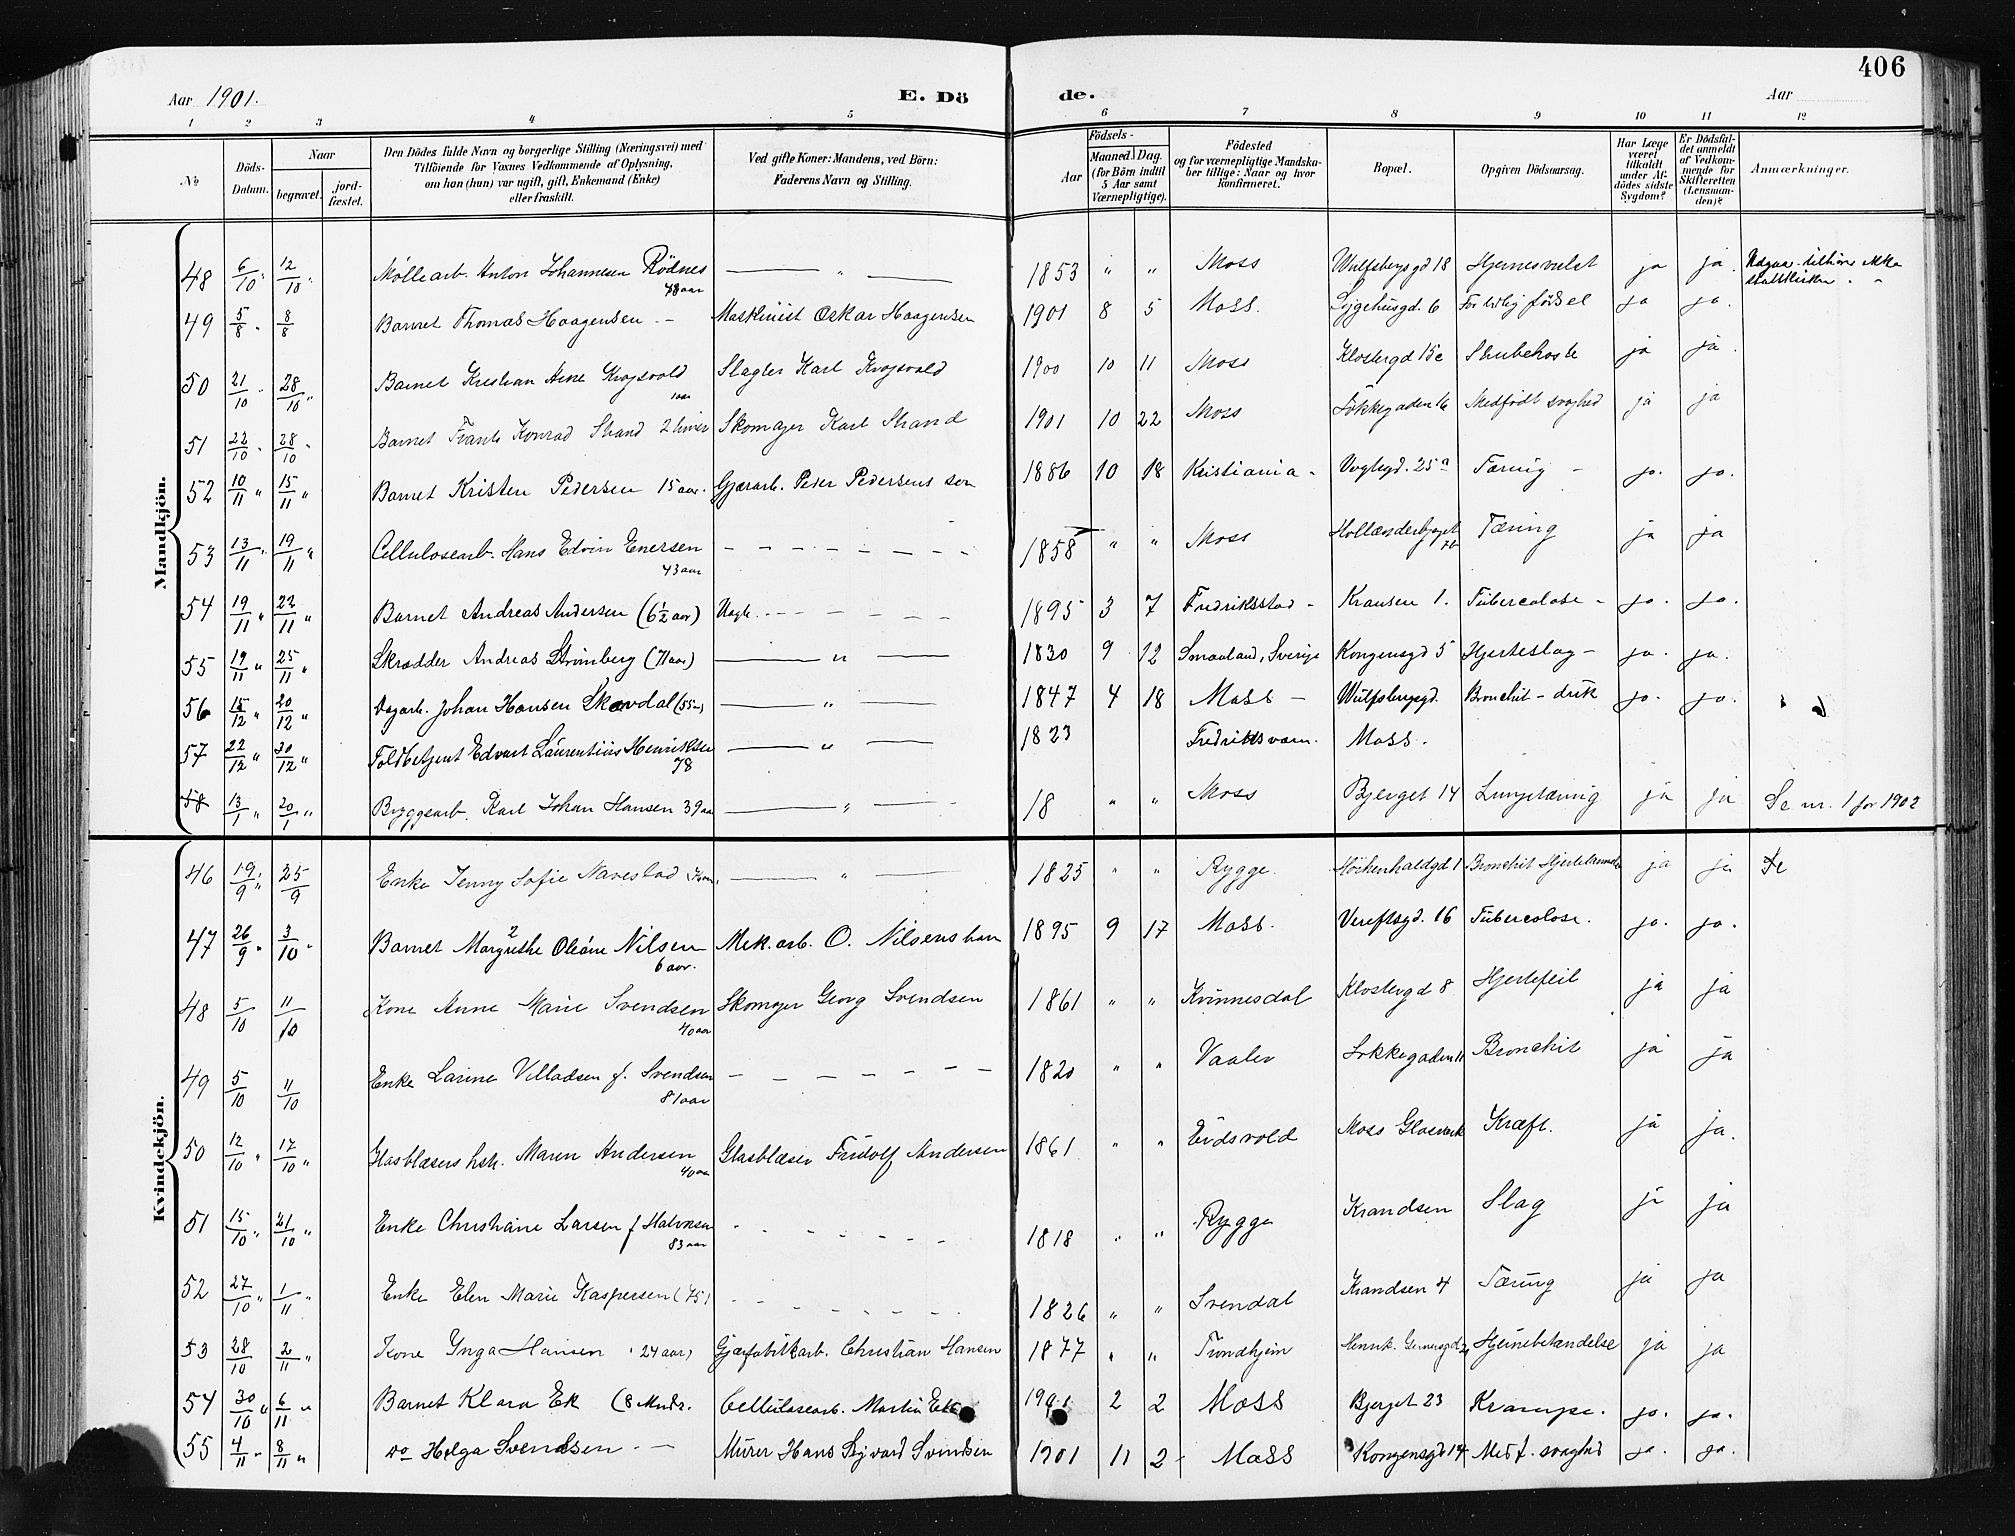 406
Aar 1901.
E. Dö
de.
Aar
1 2 3 4 5 6 7 8 9 10 11 12
No
Döds-Datum.
Naar
begravet.
jord-fæstet.
Den Dödes fulde Navn og borgerlige Stilling (Næringsvei) med
Tilföiende for Voxnes Vedkommende af Oplysning,
om han (hun) var ugift, gift, Enkemand (Enke)
eller fraskilt.
Ved gifte Koner: Mandens, ved Börn:
Faderens Navn og Stilling.
Födsels-
Aar
Maaned. Dag.
(for Börn indtil
5 Aar samt
Værnepligtige).
Födested
og for værnepligtige Mandska-
ber tillige: Naar og hvor
konfirmeret.
Bopæl.
Opgiven Dödsaarsag.
Har Læge
været
tilkaldt
under Af-
dödes sidste
Sygdom?
Er Dödsfal-
det anmeldt
af Vedkom-
mende for
Skifteretten
(Lensman-
den)?
Anmærkninger.
Mandkjön.
48 6/10 " 12/10 " Møllearb. Anton Johannesen Rödnes 48 aar — " — 1853 " " Moss Wulfsbergsgd 18 Hjernesvulst ja ja. tilhörer ikke statskirken
49 5/8 " 8/8 Barnet Thomas Haagensen — Maskinist Oskar Haagensen 1901 8 5 Moss. Sygehusgd. 6 For tidlig födsel ja ja.
50 21/10 " 28/10 " Barnet Kristian Arne Krogsvold 1 aar Slagter Karl Krogsvold 1900 10 11 Moss Klostergd 15c Strubehoste ja ja
51 22/10 " 28/10 " Barnet Frants Konrad Strand 2 timer Skomager Karl Strand 1901 10 22 Moss Lökkegaden 16 Medfödt svaghed ja ja
52 10/11 " 15/11 " Barnet Kristen Pedersen 15 aar. Gjærarb. Peder Pedersens søn 1886 10 18 Kristiania - Voglsgd. 25a Tæring - ja. ja.
53 13/11 " 19/11 " Cellulosearb. Hans Edvin Enersen 43 aar — 1858 " " Moss Hollænderbjerget Tæring ja ja
54 19/11 " 22/11 " Barnet Andreas Andersen (6½ aar) Uægte. — 1895 3 7 Fredriksstad - Kransen 1. Tuberculose - ja. ja.
55 19/11 " 25/11 " Skrædder Andreas Strömberg (71 aar) — " — 1830 9 12 Smaaland, Sverige Kongensgd 5 Hjerteslag - ja. ja.
56 15/12 " 20/12 " Dagarb. Johan Hansen Skovdal (55 — " — 1847 4 18 Moss - Wulfsbergsgd. Bronchit - drik ja. ja.
57 22/12 " 30/12 " Toldbetjent Edvart Laurentius Henriksen 78 — " — 1823 Fredriksværn. Moss.
58 13/1 " 20/1 " Bryggearb. Karl Johan Hansen 39 aar — " — 18 " " Moss Bjerget 14 Lungetæring ja ja Se nr. 1 for 1902
Kvindekjön.
46 19/9 " 25/9 Enke Jenny Sofie Navestad — " — 1825 " " Rygge. 1 Bronchit ja ja
47 26/9 " 3/10 " Barnet Margrethe Oleane Nilsen 6 aar. Mek. arb. O. Nilsens barn 1895 9 17 Moss. Verftsgd. 16 Tuberculose. ja. ja.
48 5/10 11/10 Kone Anne Marie Svendsen 40 aar Skomager Georg Svendsen 1861 " " Kvinnesdal Klostergd 8 Hjertefeil ja ja
49 5/10 11/10 Enke Larine Villadsen f. Svendsen 81 aar — 1820 " " Vaaler Lökkegaden 11 Bronchit ja ja
50 12/10 " 17/10 " Glasblæsers hstr. Maren Andersen 40 aar Glasblæser Fridolf Andersen 1861 " " Eidsvold Moss Glasværk Kræft. ja ja.
51 15/10 " 21/10 " Enke Christiane Larsen f Halvorsen 83 aar - 1818 " " Rygge Krandsen Slag ja ja
52 27/10 " 1/11 " Enke Elen Marie Kaspersen (75) - 1826 " " Svendal Krandsen 4 Tæring ja ja
53 28/10 2/11 " Kone Inga Hansen (24 aar) Gjærfabrikarb. Christian Hansen 1877 " " Trondhjem Henrik Hjernebetændelse ja ja
54 30/10 " 6/11 " Barnet Klara Ek (8 Mndr. Cellulosearb. Martin Ek 1901 2 2 Moss Bjerget 23 Krampe. ja. ja.
55 4/11 " 8/11 " do Helga Svendsen — Murer Hans Sigvard Svendsen 1901 11 2 - Moss Kongensgd 14 Medf. svaghed ja. ja.